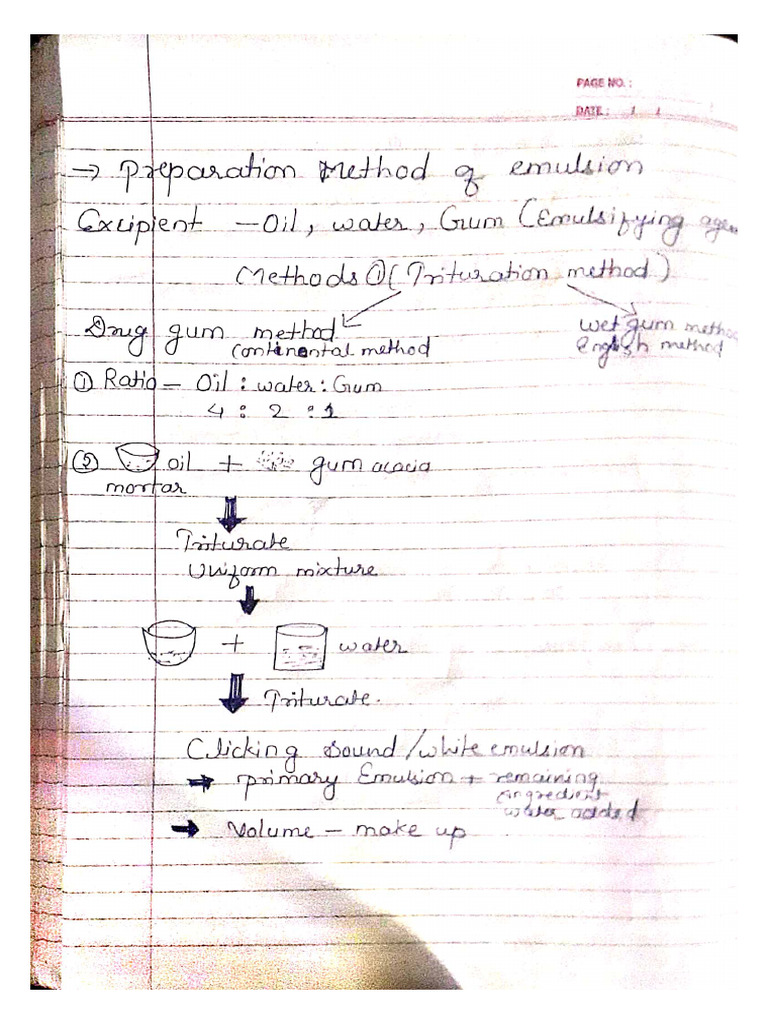 PAGE NO. :
DATE : / /
→ Preparation Method of emulsion
Excipient — Oil, water, Gum (Emulsifying agen
Methods ① (Trituration method)
Drug gum method wet gum metho
continental method english method
① Ratio — Oil : water : Gum
4 : 2 : 1
② oil + gum acacia
mortar
Triturate
Uniform mixture
+ water
Triturate.
Clicking sound / white emulsion
→ primary Emulsion + remaining
ingredient
water added
→ Volume — make up